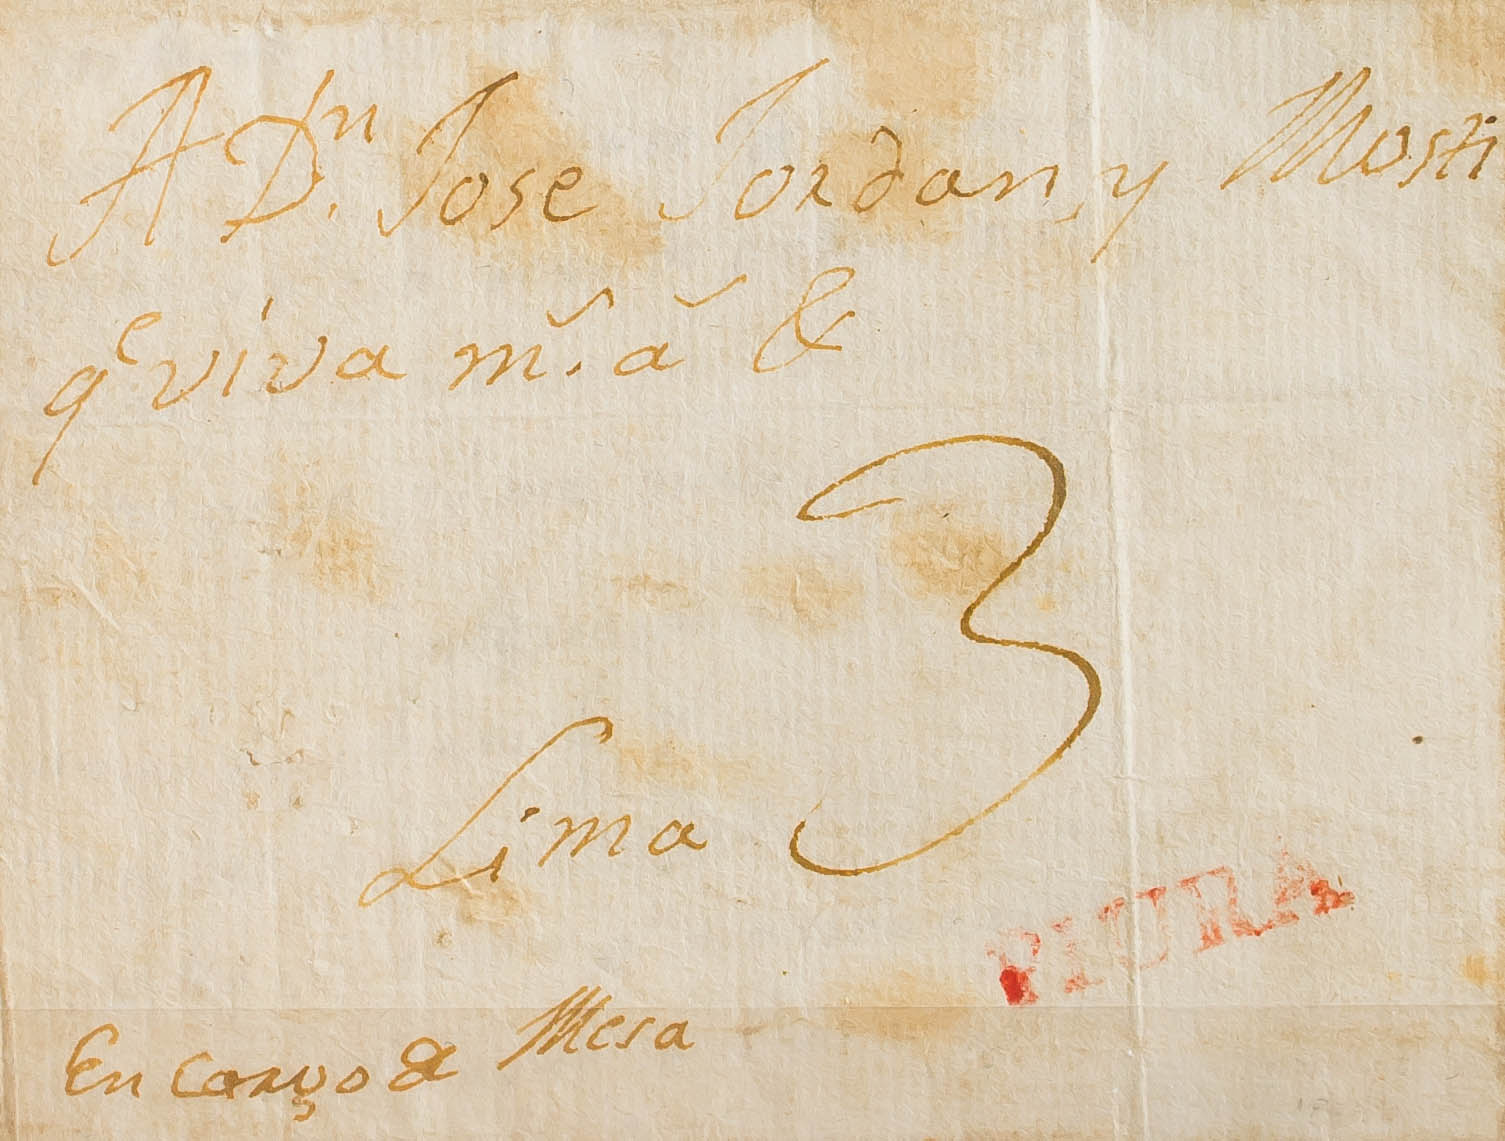 A Dn. Jose Jordan, y Mosti
qe viva ms. as &
3
Lima
PIURA
En cargo de Mesa